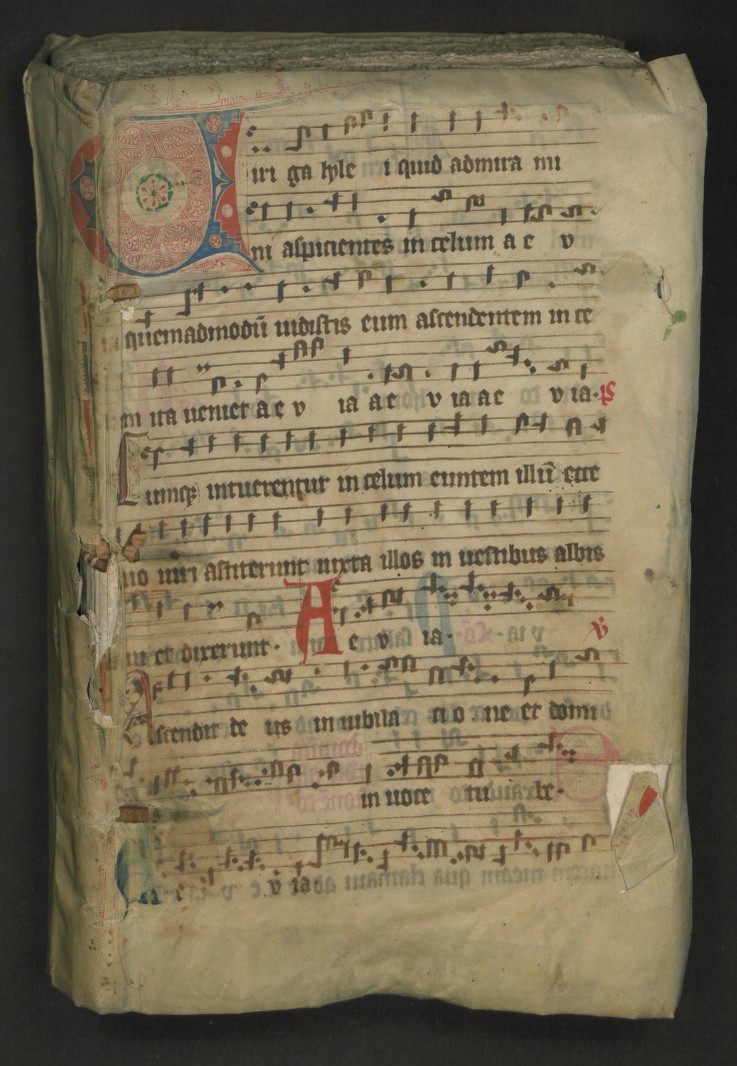 Uiri ga lyle i quid admira mi
ni aspicientes in celum a e v
quemadmodū uidistis eum ascendentem in ce
m ita ueniet a e v ia a e v ia a e v ia. ps
Cumqꝫ intuerentur in celum euntem illū ecce
uo uiri astiterunt iuxta illos in uestibus albis
et dixerunt. A e v ia.
Ascendit de us in iubila ci o ne et domi
in uoce tu be.
A e v ia